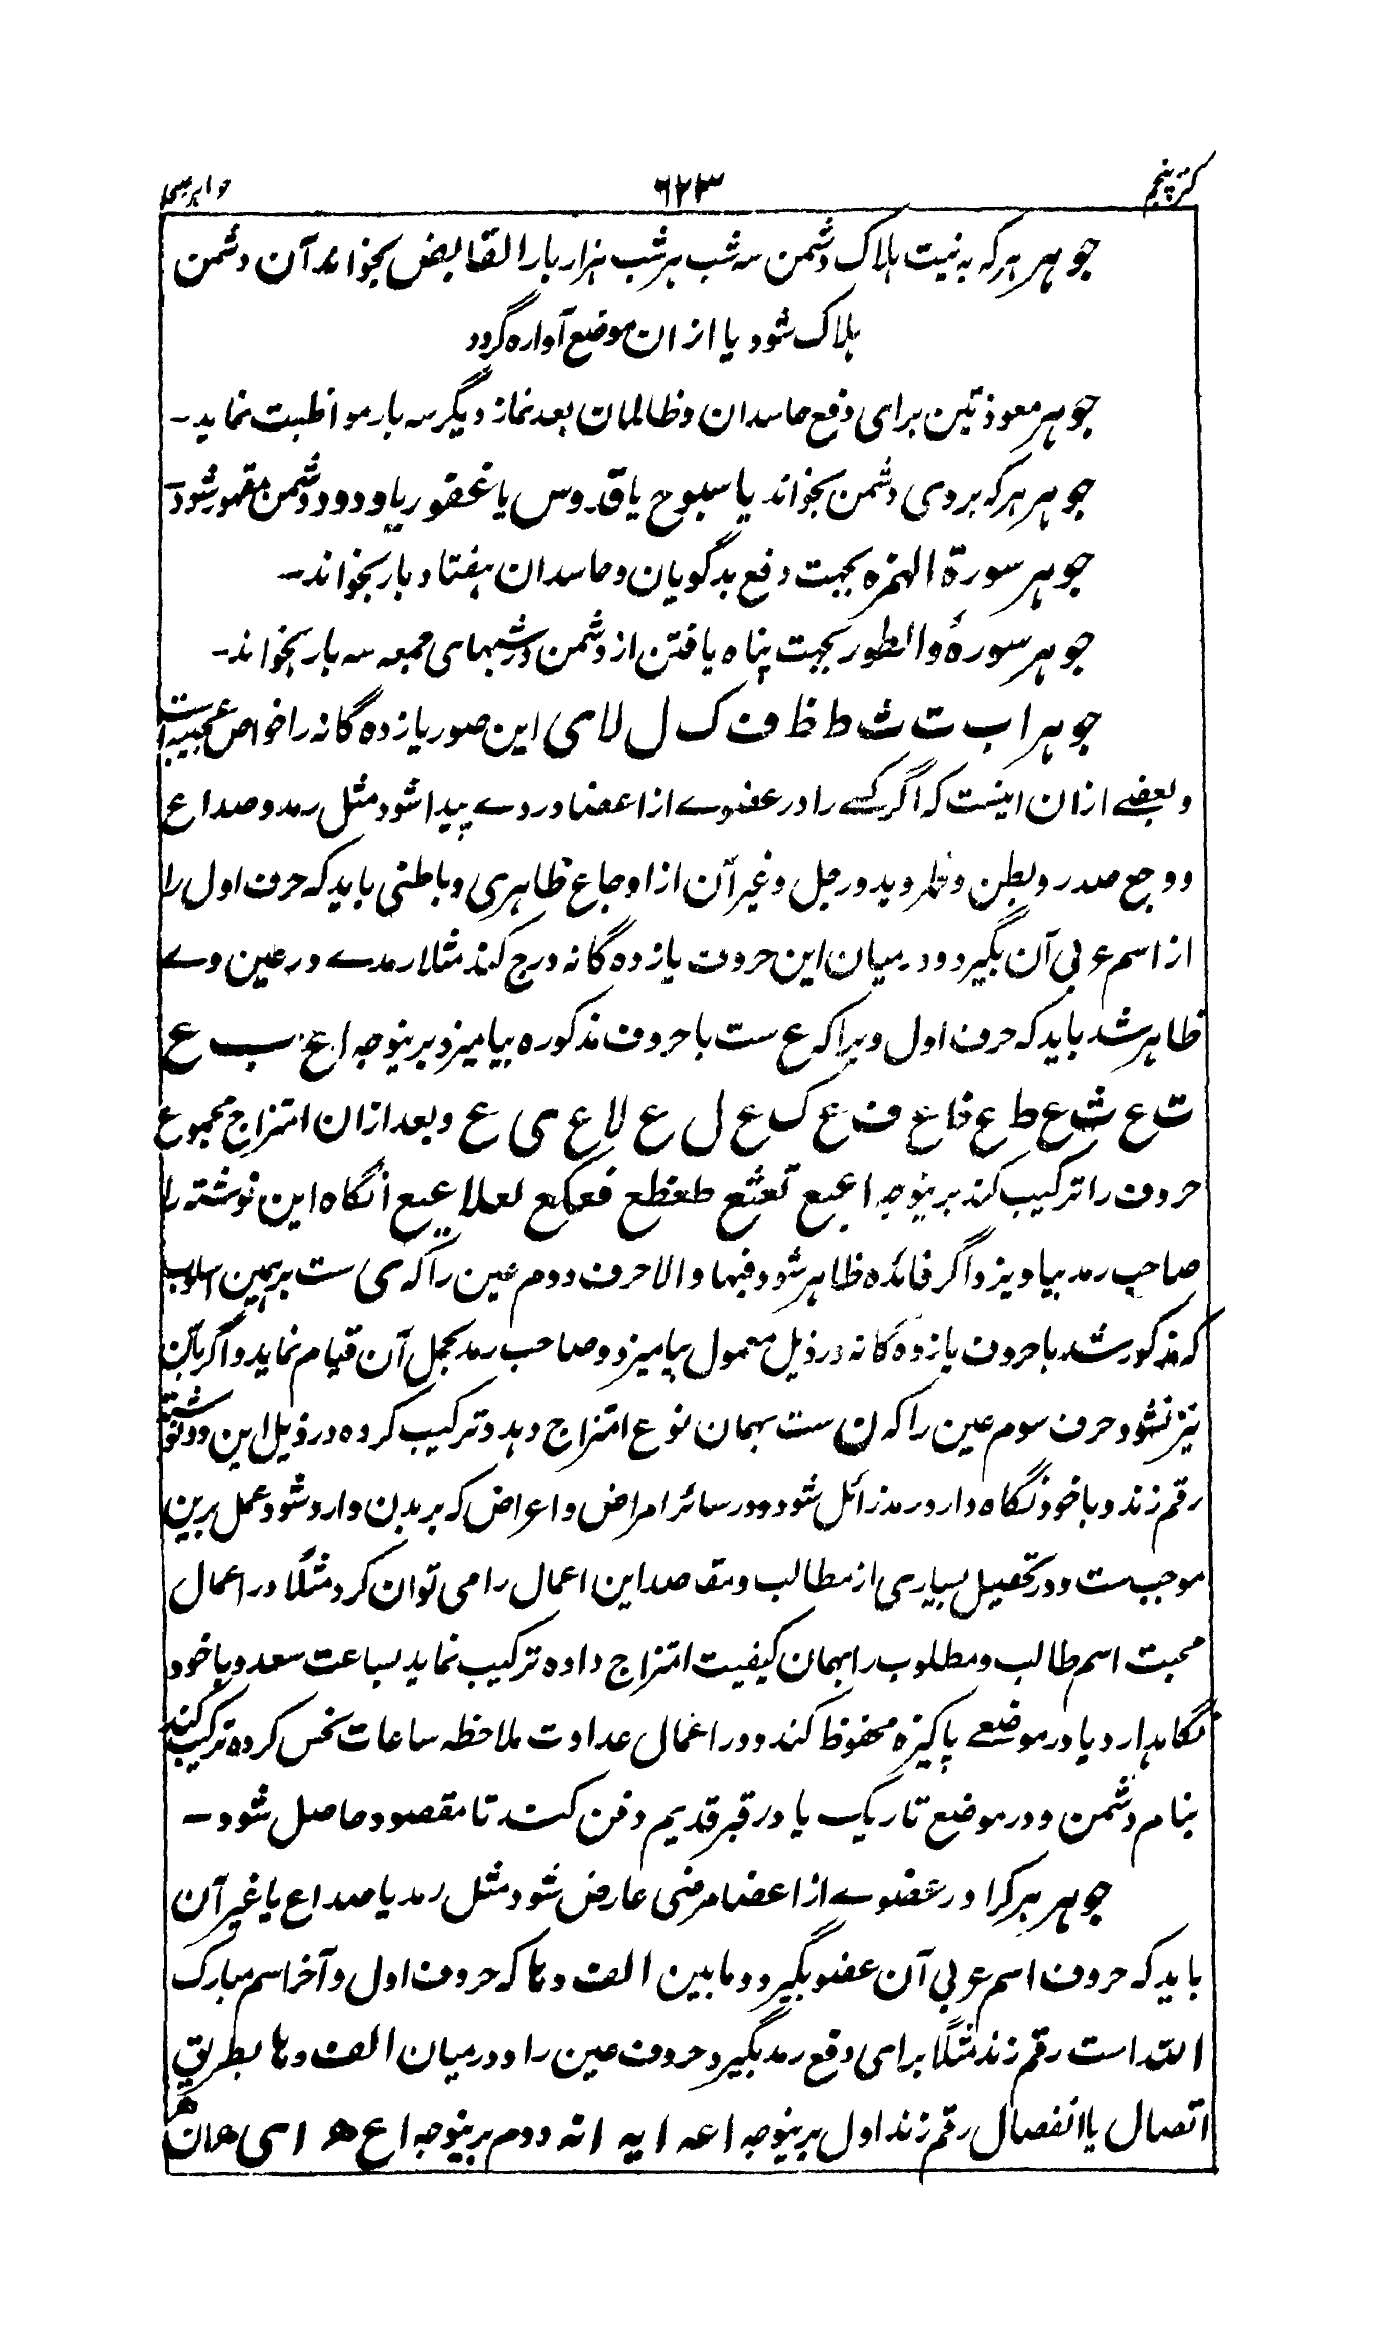 کنز پنجم ۶۲۳
جوهر هرکه به نیت ہلاک دشمن سه شب ہر شب ہزار بار القابض بخواند آن دشمن
ہلاک شود یا ازان موضع آوارہ گردد
جوهر معوذتین برای دفع حاسدان و ظالمان بعد نماز دیگر سه بار مواظبت نماید -
جوهر ہرکه بر روی دشمن بخواند یا سبوح یا قدوس یا غفور یا ودود دشمن مقہور شود -
جوهر سورة الہمزہ بجہت دفع بدگویان و حاسدان ہفتاد بار بخواند -
جوهر سورۂ والطور بجہت پناه یافتن از دشمن در شبہای جمعه سه بار بخواند -
جوهر ا ب ت ث ط ظ ف ک ل لا ی این صور یازده گانه را خواص عجیبہ است
و بعضے ازان اینست که اگر کسے را در عضوے از اعضا دردے پیدا شود مثل رمد و صداع
و وجع صدر و بطن و ظہر و ید و رجل و غیر آن از اوجاع ظاہری و باطنی باید که حرف اول را
از اسم عربی آن بگیرد و درمیان این حروف یازده گانه درج کند مثلا رمدے در عین وے
ظاہر شد باید که حرف اول ویرا که ع ست با حروف مذکوره بیامیزد برینوجه ا ع ب ع
ت ع ث ع ط ع ظ ع ف ع ک ع ل ع لا ع ی ع و بعد ازان امتزاج مجموع
حروف را ترکیب کند برینوجه اعبع تعثع طعظع فعکع لعلاعیع انگاه این نوشته را
صاحب رمد بیاویزد اگر فائده ظاہر شود فبہا والا حرف دوم عین را که ی ست برہمین اسلوب
که مذکور شد با حروف یازده گانه در ذیل معمول بیامیزد و صاحب رمد بحمل آن قیام نماید و اگر بآن
نیز نشود حرف سوم عین را که ن ست بہمان نوع امتزاج دہد و ترکیب کرده در ذیل این دو نوشته
رقم زند و با خود نگاه دارد رمد زائل شود و در سائر امراض و اعراض که بر بدن وارد شود عمل برین
موجب ست و در تحصیل بسیاری از مطالب و مقاصد این اعمال را می توان کرد مثلًا در اعمال
محبت اسم طالب و مطلوب را بہمان کیفیت امتزاج داده ترکیب نماید بساعت سعد و با خود
نگاہدارد یا در موضعے پاکیزه محفوظ کند و در اعمال عداوت ملاحظه ساعات نحس کرده ترکیب کند
بنام دشمن و در موضع تاریک یا در قبر قدیم دفن کند تا مقصود حاصل شود -
جوهر ہرکرا در عضوے از اعضا مرضی عارض شود مثل رمد یا صداع یا غیر آن
باید که حروف اسم عربی آن عضو بگیرد و مابین الف و ہا که حروف اول و آخر اسم مبارک
اللہ است رقم زند مثلًا برای دفع رمد بگیرد حروف عین را و درمیان الف و ہا بطریق
اتصال یا انفصال رقم زند اول برینوجه اعه ایه انه دوم برینوجه ا ع ه ا ی ه ا ن ه